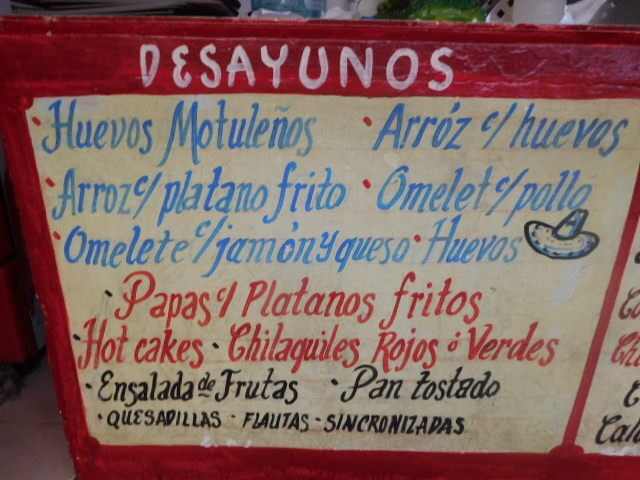 DESAYUNOS
·Huevos Motuleños ·Arróz c/ huevos
·Arroz c/ platano frito ·Omelet c/ pollo
·Omelete c/ jamón y queso ·Huevos
·Papas c/ Platanos fritos
·Hot cakes ·Chilaquiles Rojos ó Verdes
·Ensalada de Frutas ·Pan tostado
·QUESADILLAS - FLAUTAS - SINCRONIZADAS